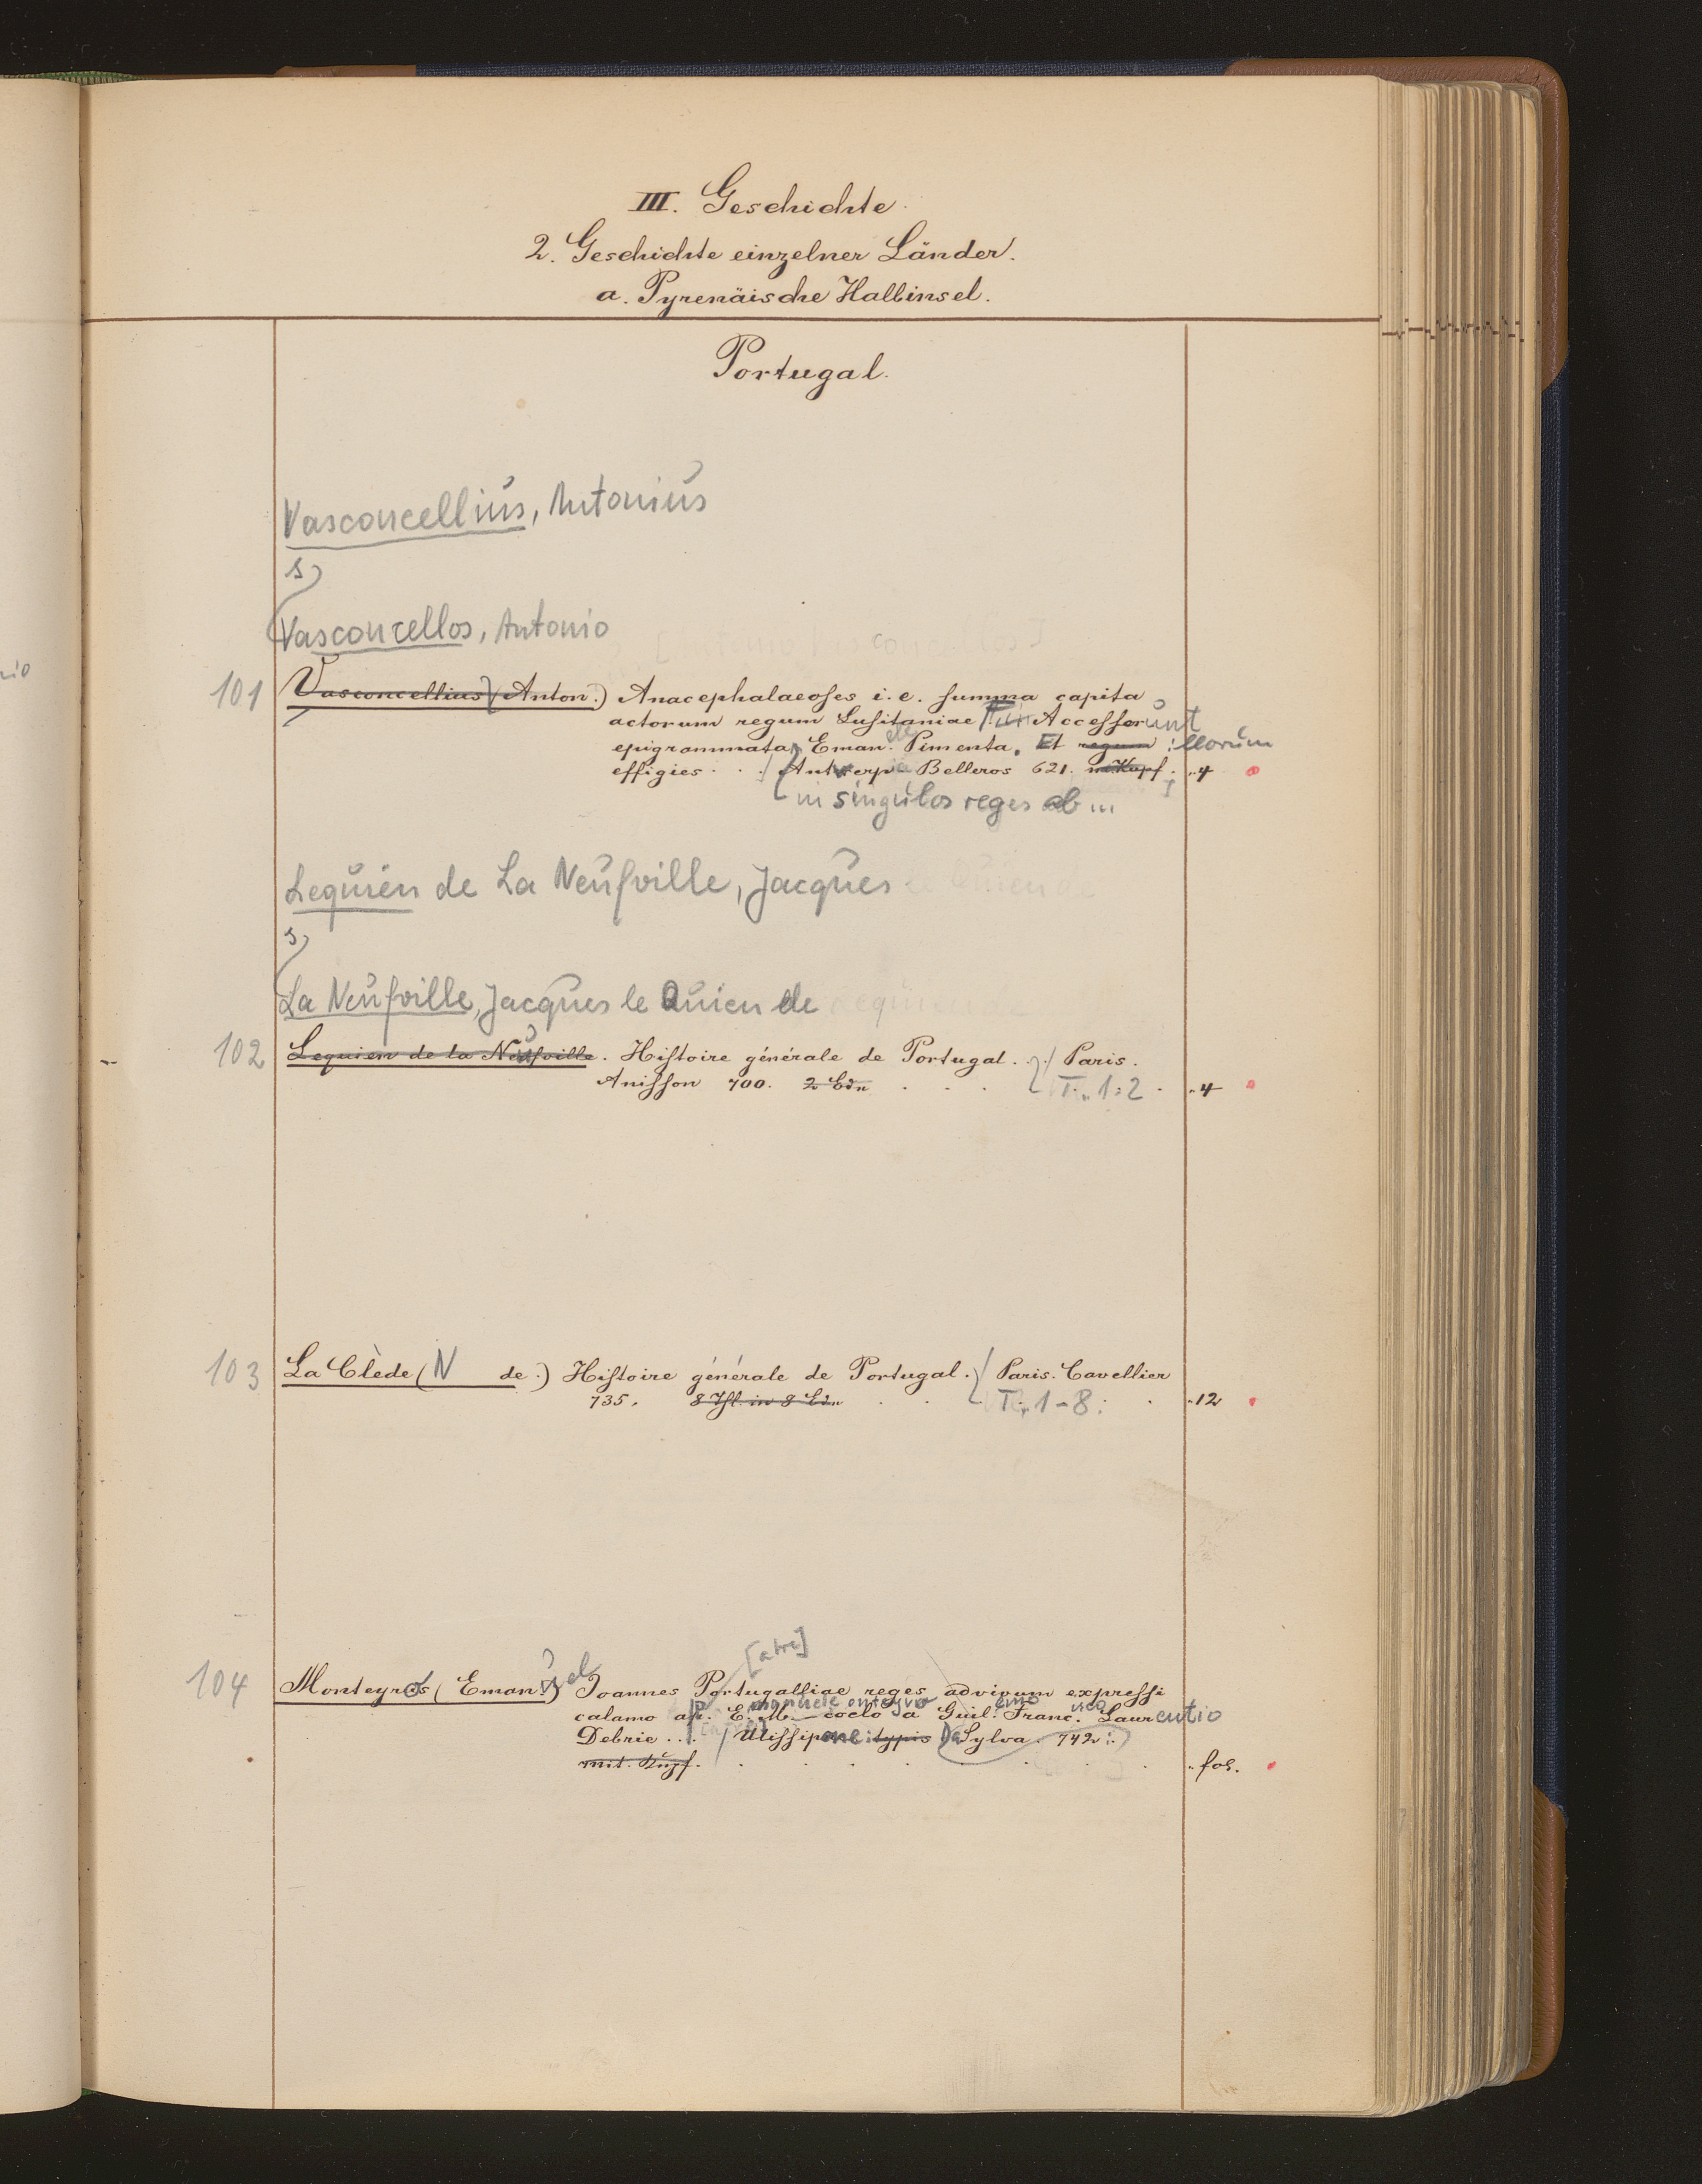 III. Geschichte.
2. Geschichte einzelner Länder.
a. Pyrenäische Halbinsel.
Portugal.
Vasconcellius, Antonius
s.
Vasconcellos, Antonio
101 Vasconcellius (Anton.) Anacephalaeoses i. e. summa capita
actorum regum Lusitaniae Accesserunt
epigrammata Eman. Pimenta. Et regum illorum
effigies . . . Antverp. Belleros 621. m. Kupf. 4
in singulos reges ab ...
Lequien de La Neufville, Jacques
s.
La Neufville, Jacques le Quien de
102 Lequien de la Neufville. Histoire générale de Portugal . . / Paris.
Anisson 700. 2 Bdn . . . T. 1. 2 . 4
103 La Clède (N de.) Histoire générale de Portugal. / Paris. Cavellier
735. 8 Thl. in 8 Bdn . . T. 1-8. . 12
[atre]
104 Monteyros (Emanuel) Joannes Portugalliae reges ad vivum expressi
calamo a E. M. coelo a Guil. Franc. Laurentio
Debrie . . . / Ulissipone: typis Sylva. 742.
mit Kupf. . . . . . . fol.